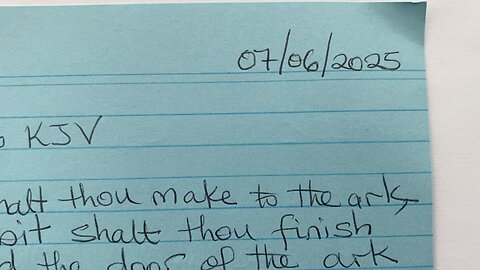 07/06/2025
KJV
thou make to the ark,
shalt thou finish
the door of the ark